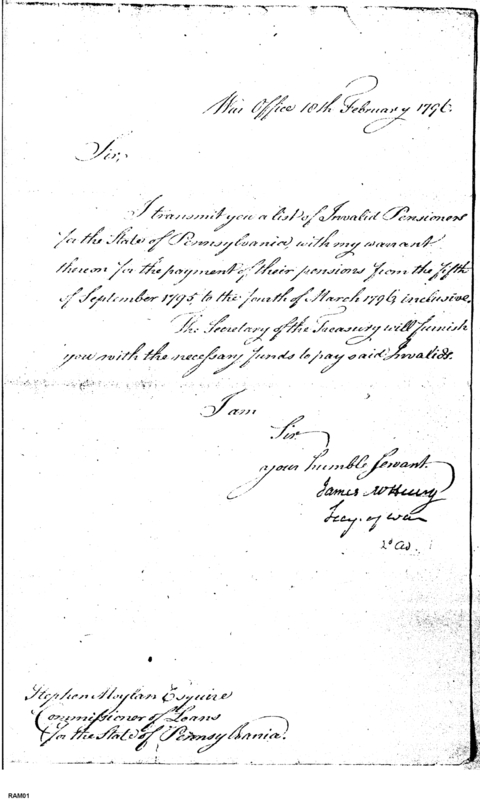 War Office 18th February 1796.
Sir,
I transmit you a list of Invalid Pensioners
for the State of Pennsylvania, with my warrant
thereon for the payment of their pensions from the fifth
of September 1795 to the fourth of March 1796 inclusive.
The Secretary of the Treasury will furnish
you with the necessary funds to pay said Invalids.
I am
Sir
your humble Servant.
James McHenry
Secy. of War
Stephen Moylan Esquire
Commissioner of Loans
for the State of Pennsylvania.
RAM01